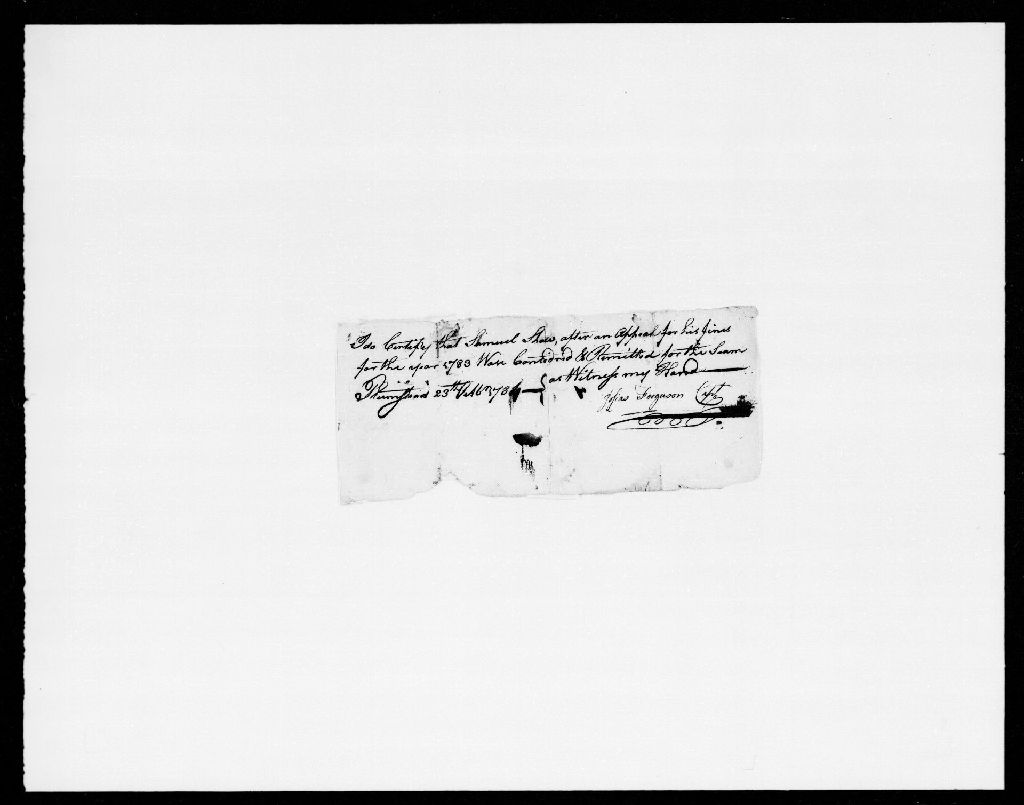 I do Certify that Samuel Shaw, after an Appeal for his fines
for the year 1783 Was Considred & Remitted for the Saam
Plumstead 23th Feb 178 as Witness my Hand
Josias Ferguson Capt